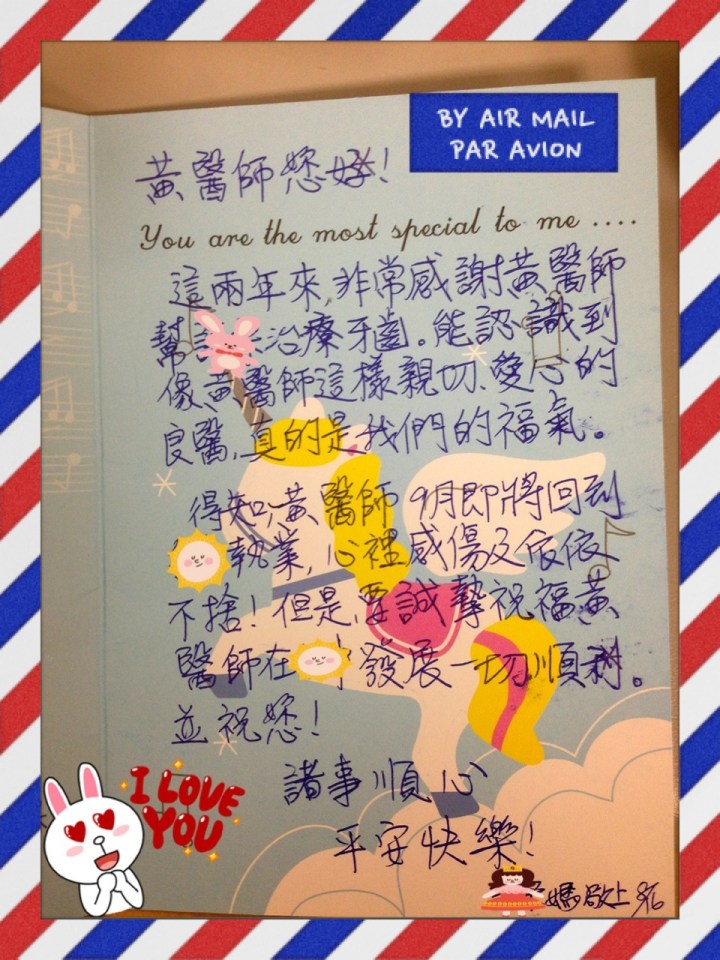 BY AIR MAIL
PAR AVION
黃醫師您好!
You are the most special to me ....
這兩年來,非常感謝黃醫師
幫 治療牙齒。能認識到
像黃醫師這樣親切、愛心的
良醫,真的是我們的福氣。
得知黃醫師9月即將回到
執業,心裡感傷及依依
不捨!但是,要誠摯祝福黃
醫師在 發展一切順利。
並祝您!
諸事順心
平安快樂!
媽敬上 8/6
I LOVE
YOU